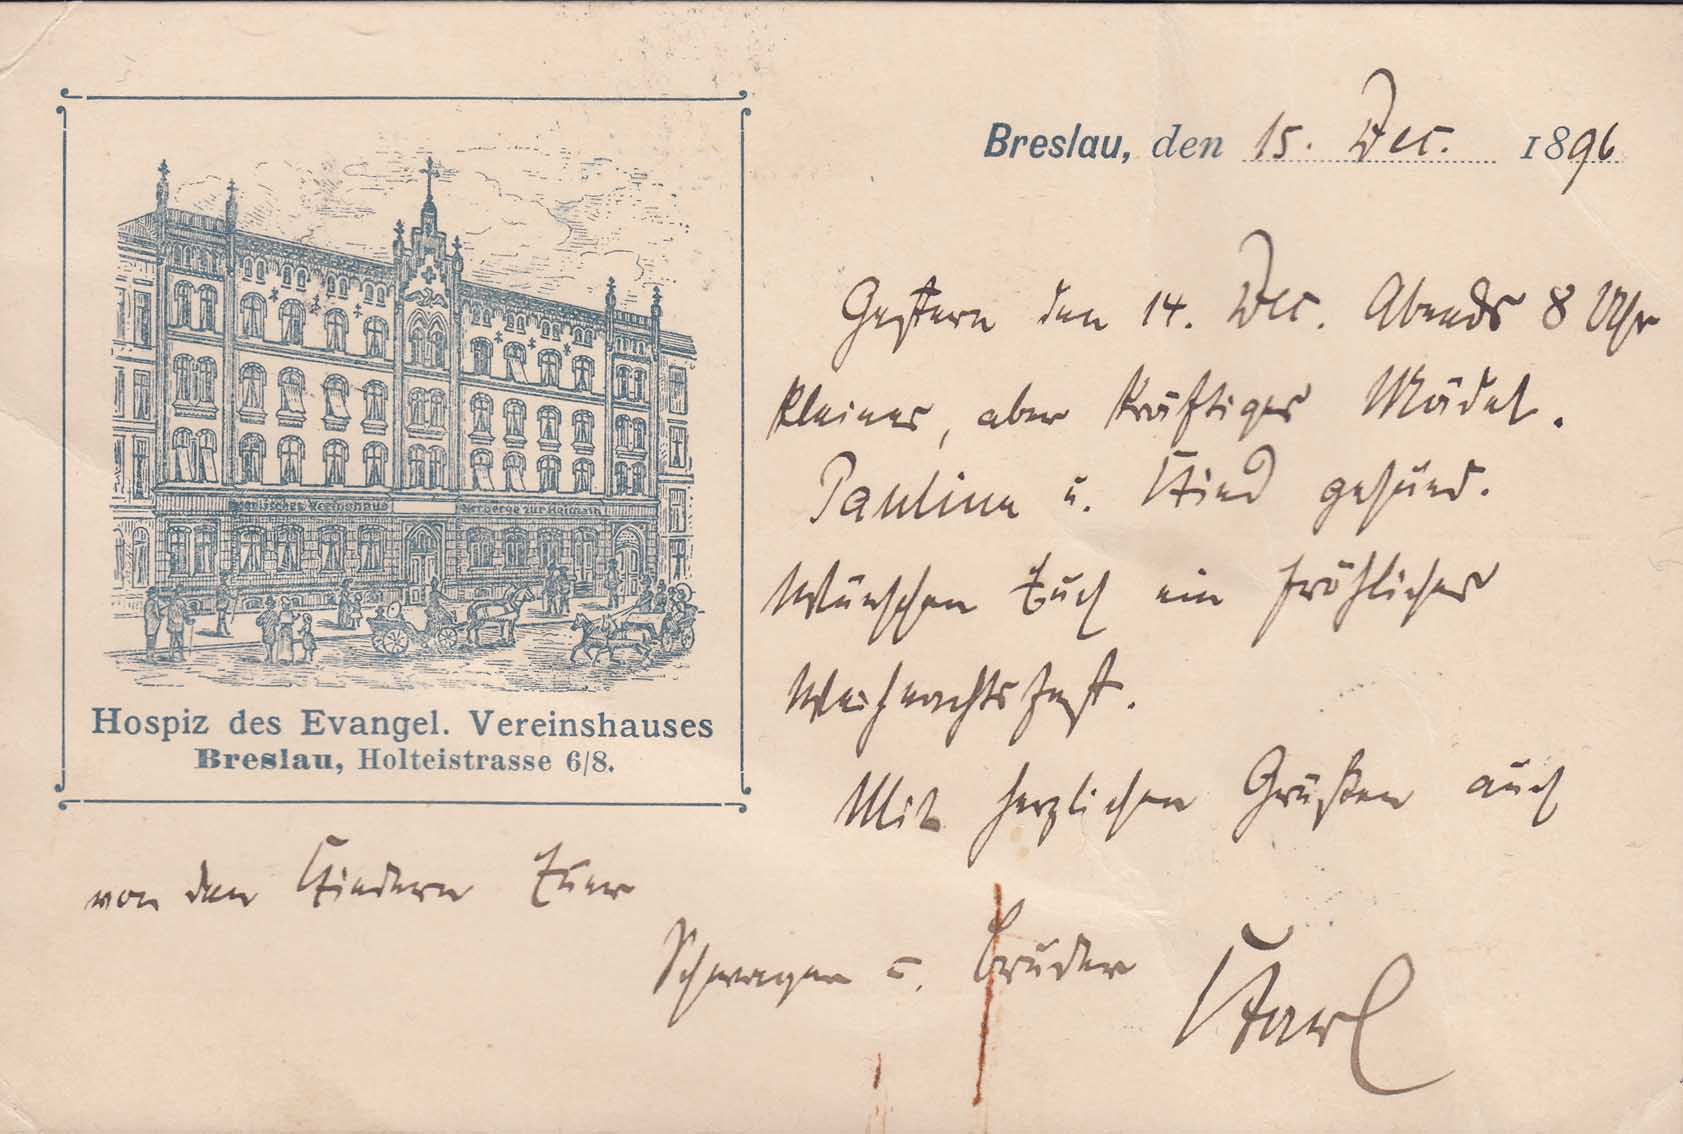 Breslau, den 15. Dec. 1896
Gestern den 14. Dec. Abends 8 Uhr
kleines, aber kräftiges Mädel.
Pauline u. Kind gesund.
Wünschen Euch ein fröhliches
Weihnachtsfest.
Mit herzlichen Grüßen auch
von den Kindern Euer
Schwager u. Bruder Karl
Evangelisches Vereinshaus Herberge zur Heimath
Hospiz des Evangel. Vereinshauses
Breslau, Holteistrasse 6/8.